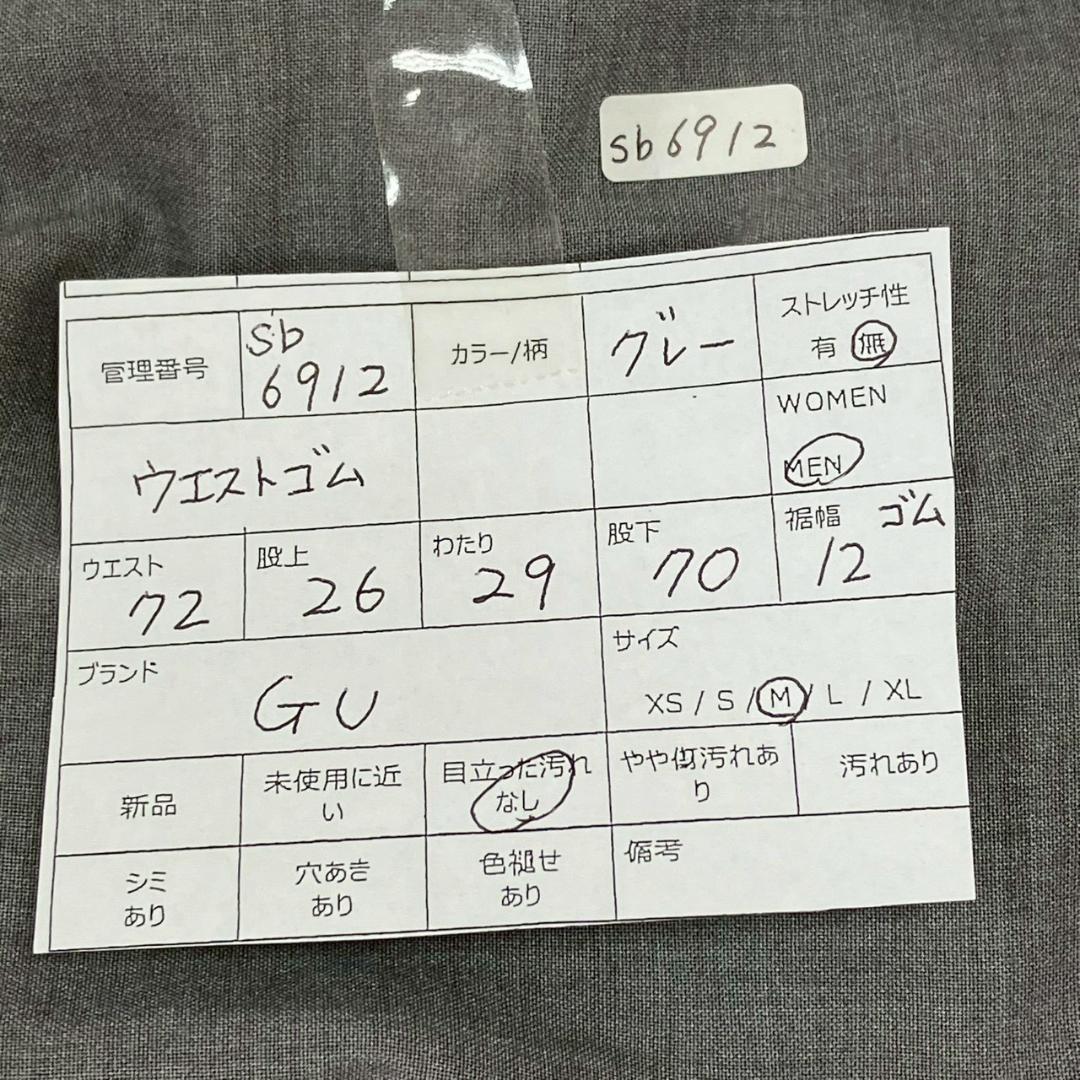 sb6912
管理番号
sb
6912
カラー/柄
グレー
ストレッチ性
有 無
ウエストゴム
WOMEN
MEN
ウエスト
72
股上
26
わたり
29
股下
70
裾幅 ゴム
12
ブランド
GU
サイズ
XS / S / M / L / XL
新品
未使用に近
い
目立った汚れ
なし
やや傷汚れあ
り
汚れあり
シミ
あり
穴あき
あり
色褪せ
あり
備考